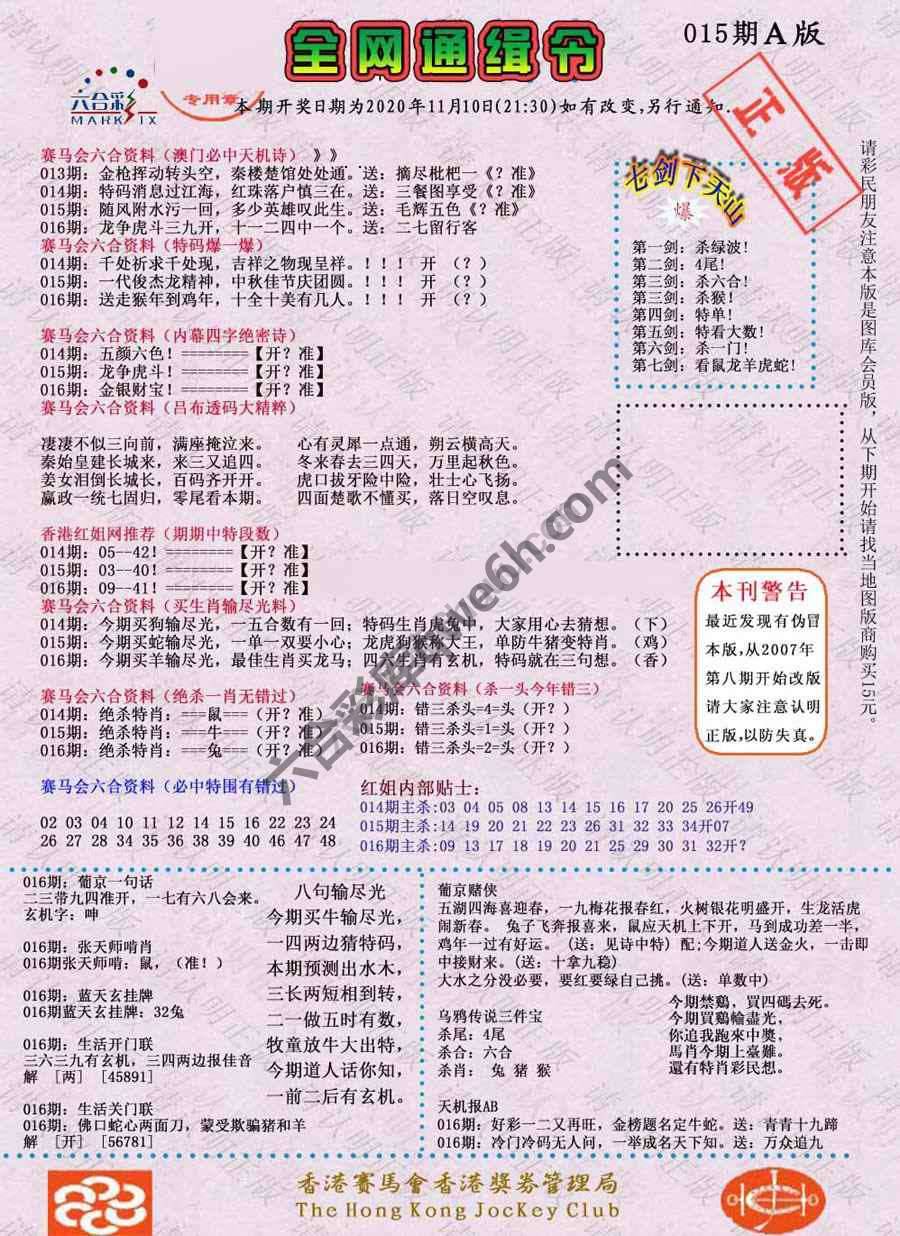 全网通缉令
015期A版
六合彩
MARK SIX
专用章
本期开奖日期为2020年11月10日(21:30)如有改变,另行通知.
正版
赛马会六合资料（澳门必中天机诗）》》
013期: 金枪挥动转头空, 秦楼楚馆处处通。送: 摘尽枇杷一《? 准》
014期: 特码消息过江海, 红珠落户慎三在。送: 三餐图享受《? 准》
015期: 随风附水污一回, 多少英雄叹此生。送: 毛辉五色《? 准》
016期: 龙争虎斗三九开, 十一二四中一个。送: 二七留行客
赛马会六合资料（特码爆一爆）
014期: 千处祈求千处现, 吉祥之物现呈祥。！！！ 开 （? ）
015期: 一代俊杰龙精神, 中秋佳节庆团圆。！！！ 开 （? ）
016期: 送走猴年到鸡年, 十全十美有几人。！！！ 开 （? ）
赛马会六合资料（内幕四字绝密诗）
014期: 五颜六色！========【开? 准】
015期: 龙争虎斗！========【开? 准】
016期: 金银财宝！========【开? 准】
赛马会六合资料（吕布透码大精粹）
凄凄不似三向前, 满座掩泣来。 心有灵犀一点通, 朔云横高天。
秦始皇建长城来, 来三又追四。 冬来春去三四天, 万里起秋色。
姜女泪倒长城长, 百码齐开开。 虎口拔牙险中险, 壮士心飞扬。
嬴政一统七固归, 零尾看本期。 四面楚歌不懂买, 落日空叹息。
香港红姐网推荐（期期中特段数）
014期: 05--42! ========【开? 准】
015期: 03--40! ========【开? 准】
016期: 09--41! ========【开? 准】
赛马会六合资料（买生肖输尽光料）
014期: 今期买狗输尽光, 一五合数有一回; 特码生肖虎兔中, 大家用心去猜想。（下）
015期: 今期买蛇输尽光, 一单一双要小心; 龙虎狗猴称大王, 单防牛猪变特肖。（鸡）
016期: 今期买羊输尽光, 最佳生肖买龙马; 四六生肖有玄机, 特码就在三句想。（香）
赛马会六合资料（绝杀一肖无错过）
014期: 绝杀特肖: ===鼠===（开? 准）
015期: 绝杀特肖: ===牛===（开? 准）
016期: 绝杀特肖: ===兔===（开? 准）
赛马会六合资料（杀一头今年错三）
014期: 错三杀头=4=头（开? ）
015期: 错三杀头=1=头（开? ）
016期: 错三杀头=2=头（开? ）
赛马会六合资料（必中特围有错过）
02 03 04 10 11 12 14 15 16 22 23 24
26 27 28 34 35 36 38 39 40 46 47 48
红姐内部贴士:
014期主杀:03 04 05 08 13 14 15 16 17 20 25 26开49
015期主杀:14 19 20 21 22 23 26 31 32 33 34开07
016期主杀:09 13 17 18 19 20 21 25 29 30 31 32开?
七剑下天山
爆
第一剑: 杀绿波!
第二剑: 4尾!
第三剑: 杀六合!
第三剑: 杀猴!
第四剑: 特单!
第五剑: 特看大数!
第六剑: 杀一门!
第七剑: 看鼠龙羊虎蛇!
请彩民朋友注意本版是图库会员版, 从下期开始请找当地图版商购买15元。
本刊警告
最近发现有伪冒
本版,从2007年
第八期开始改版
请大家注意认明
正版,以防失真。
六合彩库 mve6h.com
016期: 葡京一句话
二三带九四准开, 一七有六八会来。
玄机字: 呻
016期: 张天师啃肖
016期张天师啃: 鼠, （准! ）
016期: 蓝天玄挂牌
016期蓝天玄挂牌: 32兔
016期: 生活开门联
三六三九有玄机, 三四两边报佳音
解 [两] [45891]
016期: 生活关门联
016期: 佛口蛇心两面刀, 蒙受欺骗猪和羊
解 [开] [56781]
八句输尽光
今期买牛输尽光,
一四两边猜特码,
本期预测出水木,
三长两短相到转,
二一做五时有数,
牧童放牛大出特,
今期道人话你知,
一前二后有玄机。
葡京赌侠
五湖四海喜迎春, 一九梅花报春红, 火树银花明盛开, 生龙活虎
闹新春。 兔子飞奔报喜来, 鼠应天机上下开, 马到成功差一半,
鸡年一过有好运。（送: 见诗中特）配;今期道人送金火, 一击即
中接财来。（送: 十拿九稳）
大水之分没必要, 要红要绿自己挑。(送: 单数中)
乌鸦传说三件宝
杀尾: 4尾
杀合: 六合
杀肖: 兔 猪 猴
今期禁鷄, 買四碼去死。
今期買鷄輸盡光,
你追我跑來中獎,
馬肖今期上臺難。
還有特肖彩民想。
天机报AB
016期: 好彩一二又再旺, 金榜题名定牛蛇。送: 青青十九蹄
016期: 冷门冷码无人问, 一举成名天下知。送: 万众追九
香港賽馬會香港獎券管理局
The Hong Kong JocKey Club